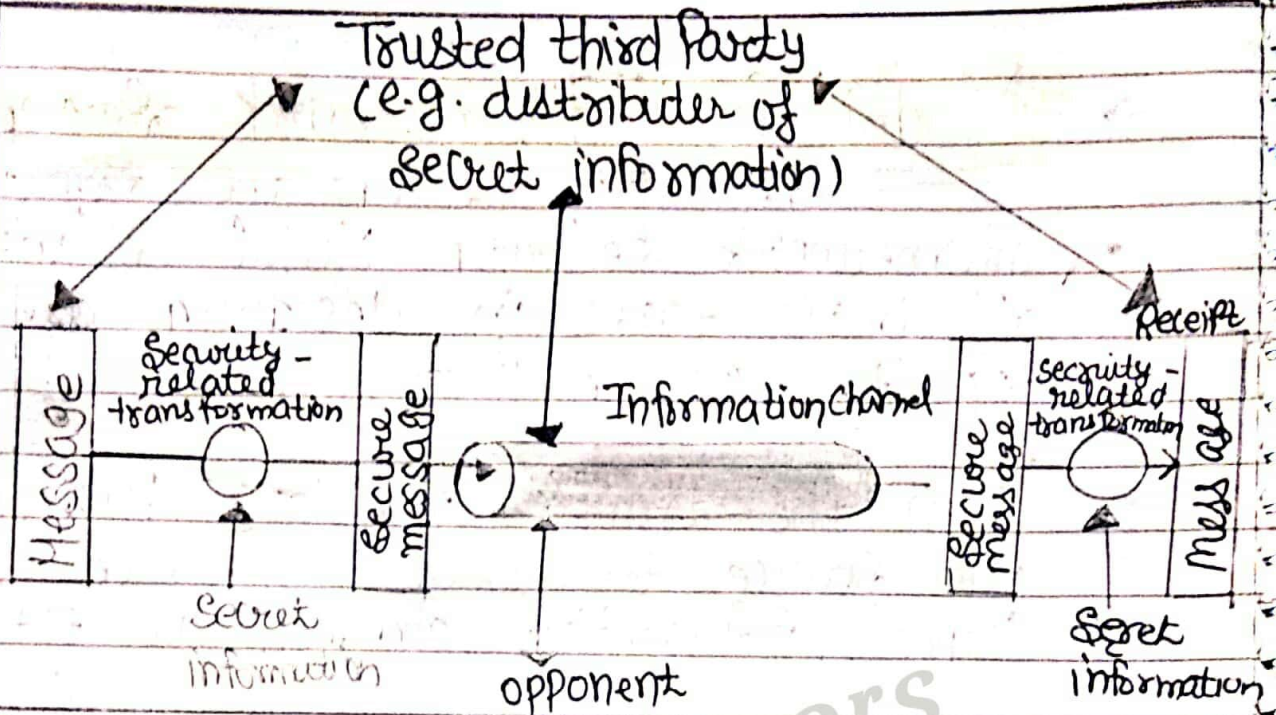 Trusted third Party
(e.g. distributer of
secret information)
Receipt
Message
Security-
related
transformation
Secure
message
Information Channel
Secure
message
secruity-
related
transformation
Message
Secret
information
opponent
Secret
information
ers